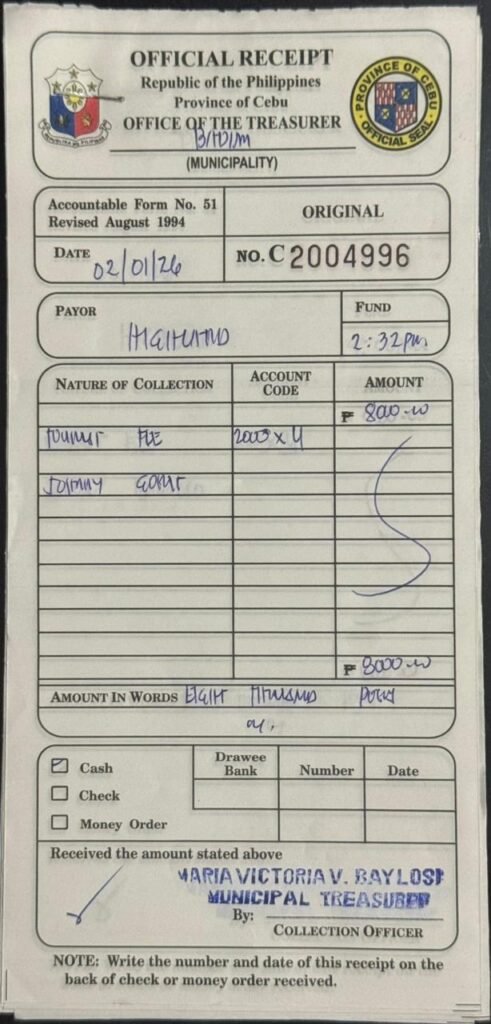 OFFICIAL RECEIPT
Republic of the Philippines
Province of Cebu
OFFICE OF THE TREASURER
(MUNICIPALITY)
PROVINCE OF CEBU
OFFICIAL SEAL
Accountable Form No. 51
Revised August 1994
ORIGINAL
DATE 02/01/26
NO. C 2004996
PAYOR
FUND
2:32pm
NATURE OF COLLECTION ACCOUNT CODE AMOUNT
₱ 8000.00
TOURIST FEE 2000 x 4
₱ 8000.00
AMOUNT IN WORDS EIGHT THOUSAND PESOS
only.
Cash
Check
Money Order
Drawee Bank Number Date
Received the amount stated above
MARIA VICTORIA V. BAYLOSI
MUNICIPAL TREASURER
By:
COLLECTION OFFICER
NOTE: Write the number and date of this receipt on the
back of check or money order received.